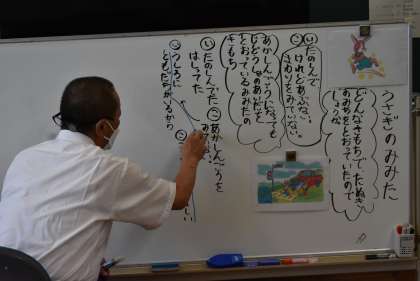 うさぎのみみた
どんなきもちで、たぬき
のみちをとおっていたので
しょうか
い たのしんで
けれどあぶない
まわりをみていない
あかしんごうになっても
じどう車のあいだを
とおっているみみたの
きもち
い たのしんでた
はしってた
あかしんごうを
うしろに
ともだちがいるから
しい